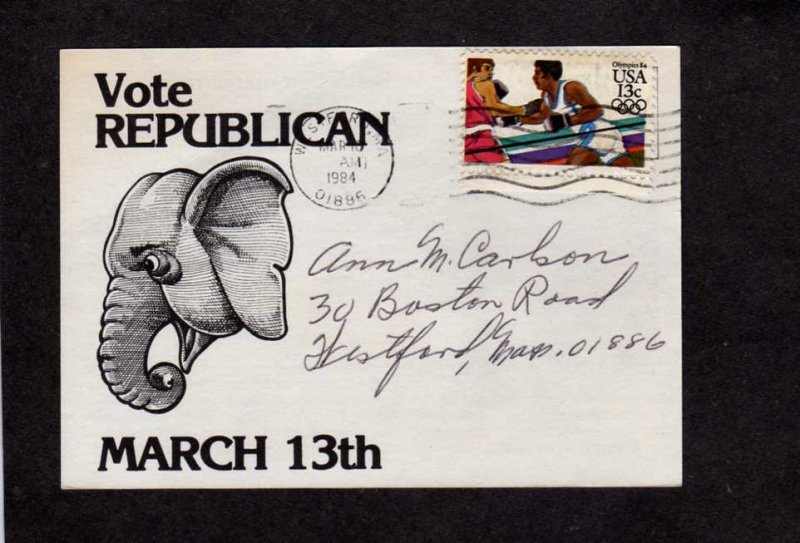 Vote
REPUBLICAN
Olympics 84
USA
13c
MAR 10
AM
1984
01886
Ann M. Carlson
30 Boston Road
Westford, Mass. 01886
MARCH 13th